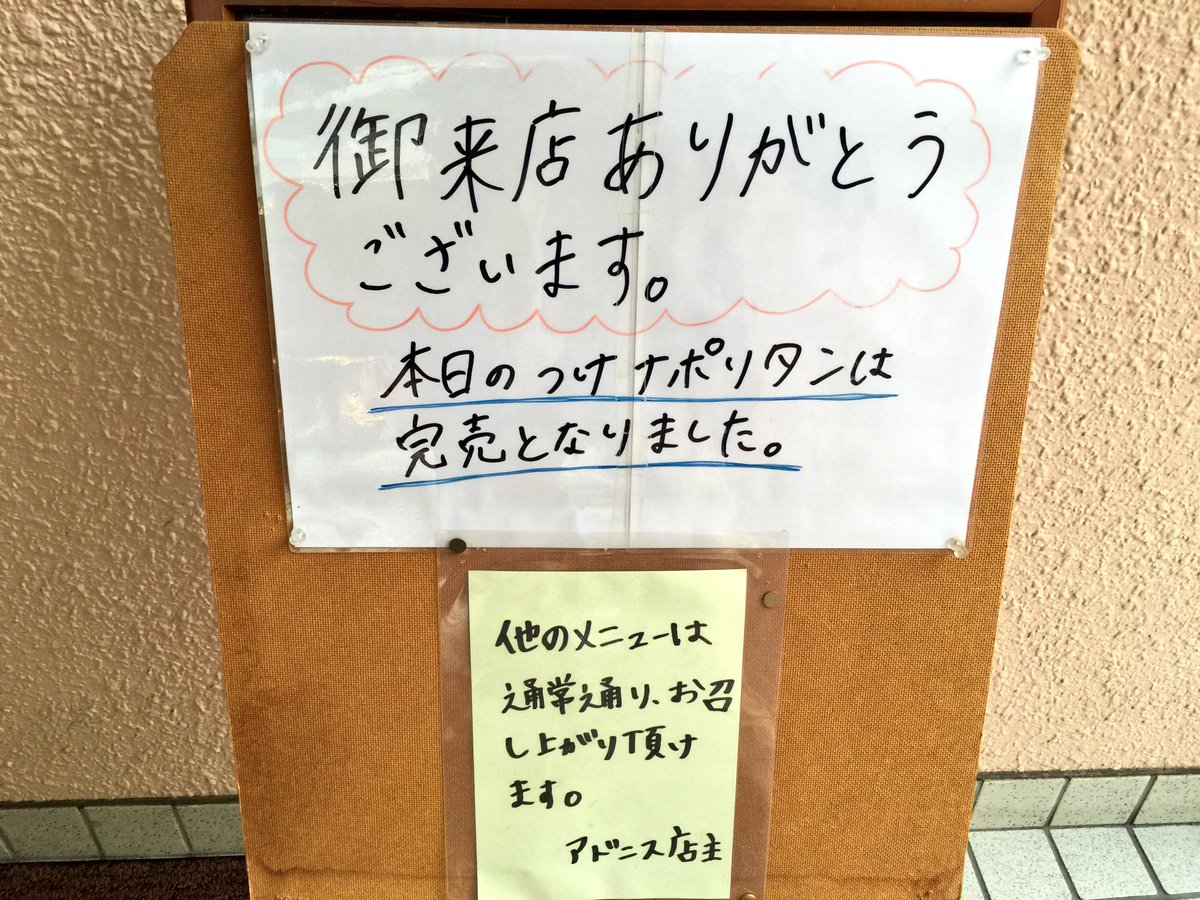 御来店ありがとう
ございます。
本日のつけナポリタンは
完売となりました。
他のメニューは
通常通り、お召
し上がり頂け
ます。
アドニス店主